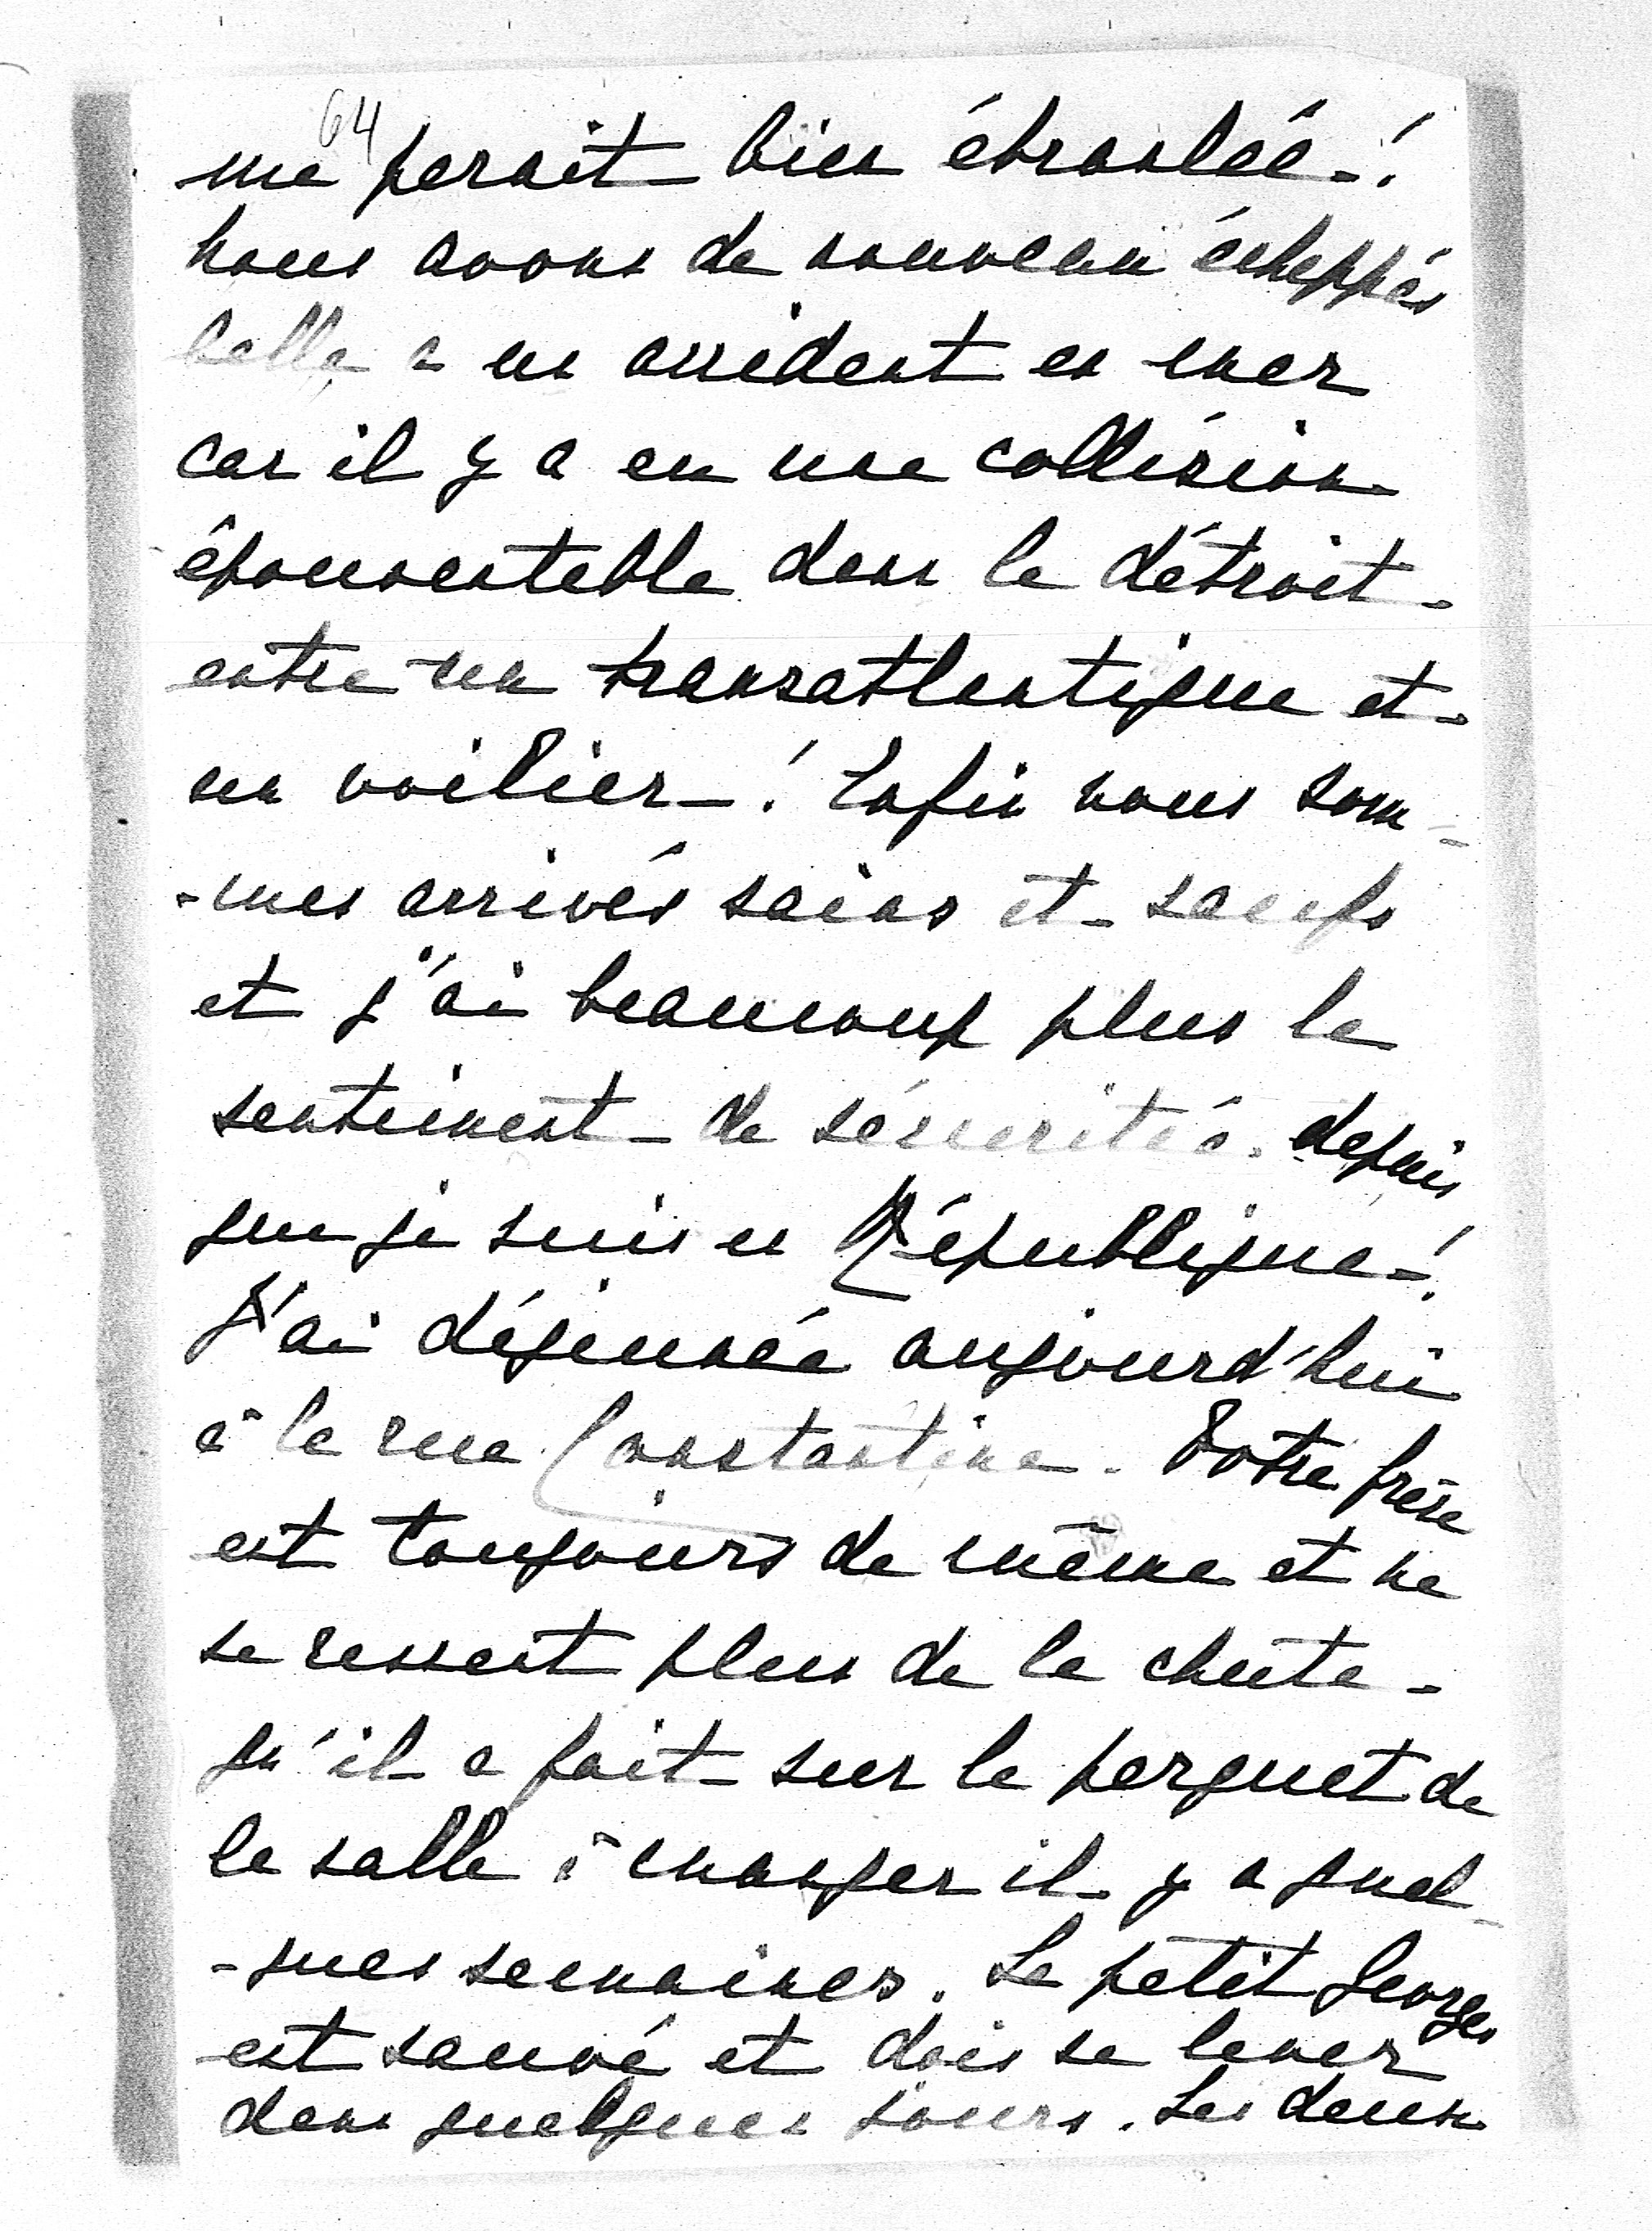 64
me parait bien ébranlée !
Nous avons de nouveau échappés
belle a un accident en mer
car il y a eu une collision
épouvantable dans le détroit
entre un transatlantique et
un voilier ! Enfin nous som-
-mes arrivés sains et saufs
et j'ai beaucoup plus le
sentiment de sécurité depuis
que je suis en République !
J'ai déjeunée aujourd'hui
à la rue Constantine. Votre frère
est toujours de même et ne
se ressent plus de la chute
qu'il a fait sur le parquet de
la salle à manger il y a quel-
-ques semaines. Le petit Georges
est sauvé et dois se lever
dans quelques jours. Les deux